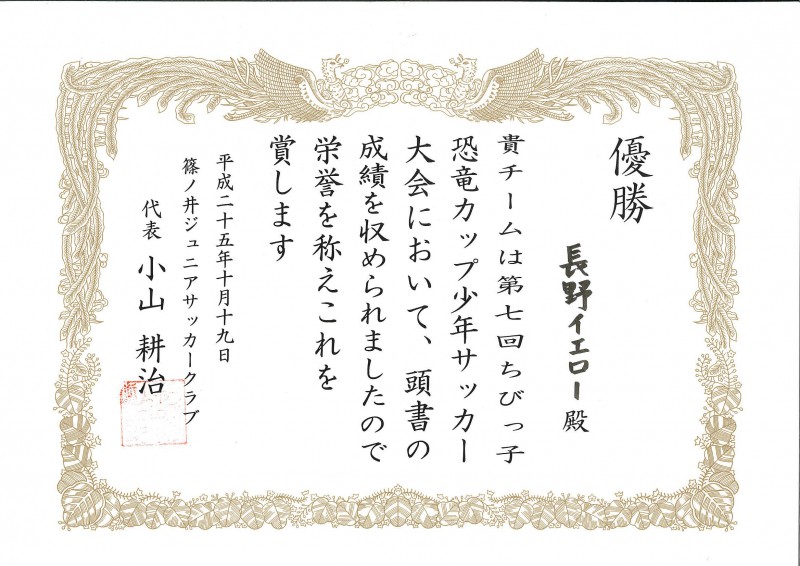 優勝
長野イエロー殿
貴チームは第七回ちびっ子
恐竜カップ少年サッカー
大会において、頭書の
成績を収められましたので
栄誉を称えこれを
賞します
平成二十五年十月十九日
篠ノ井ジュニアサッカークラブ
代表 小山 耕治